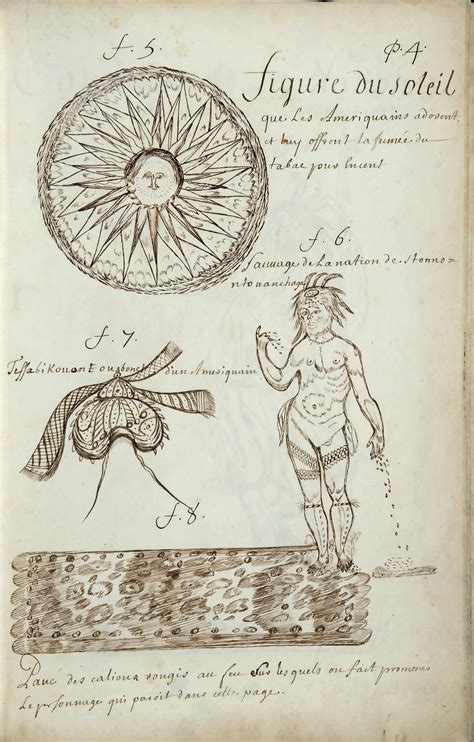 f. 5.
P. 4.
figure du soleil
que les Ameriquains adorent,
et luy offrent la fumée du
tabac pour Encens
f. 6.
Sauvage de La nation de
f. 7.
ou gbonet d'un Ameriquain
f. 8.
Pavé des calioux rougis au feu sur lesquels on fait promener
Le personnage qui paroit dans cette page.